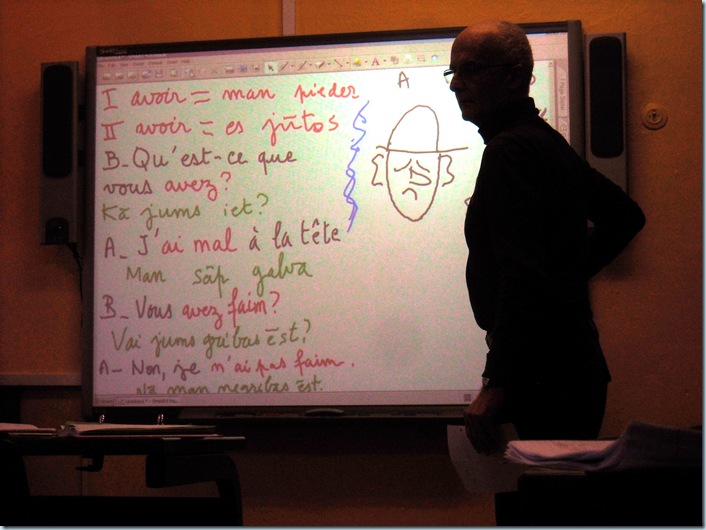 I avoir = man pieder
II avoir = es jūtos
B_Qu'est-ce que
vous avez?
Kā jums iet?
A_ J'ai mal à la tête
Man sāp galva
B_ Vous avez faim?
Vai jums gribas ēst?
A_ Non, je n'ai pas faim.
Nē man negribas ēst.
A